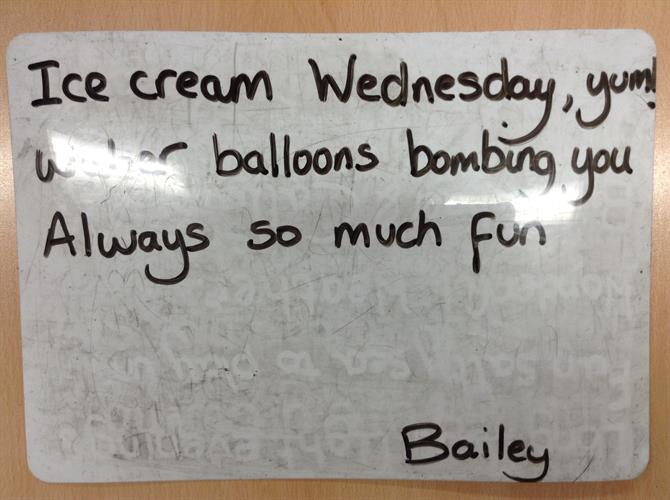 Ice cream Wednesday, yum!
water balloons bombing you
Always so much fun
Bailey